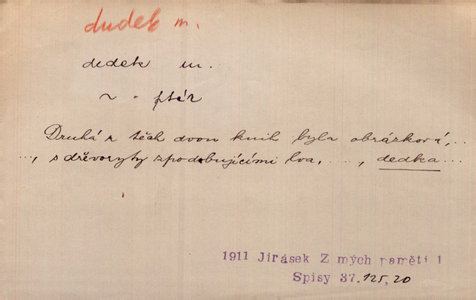 dudek m.
dedek m.
~ - pták
Druhá z těch dvou knih byla obrázková,..
.., s dřevoryty zpodobujícími lva, . . ., dedka...
1911 Jirásek Z mých pamětí 1
Spisy 37.125,20